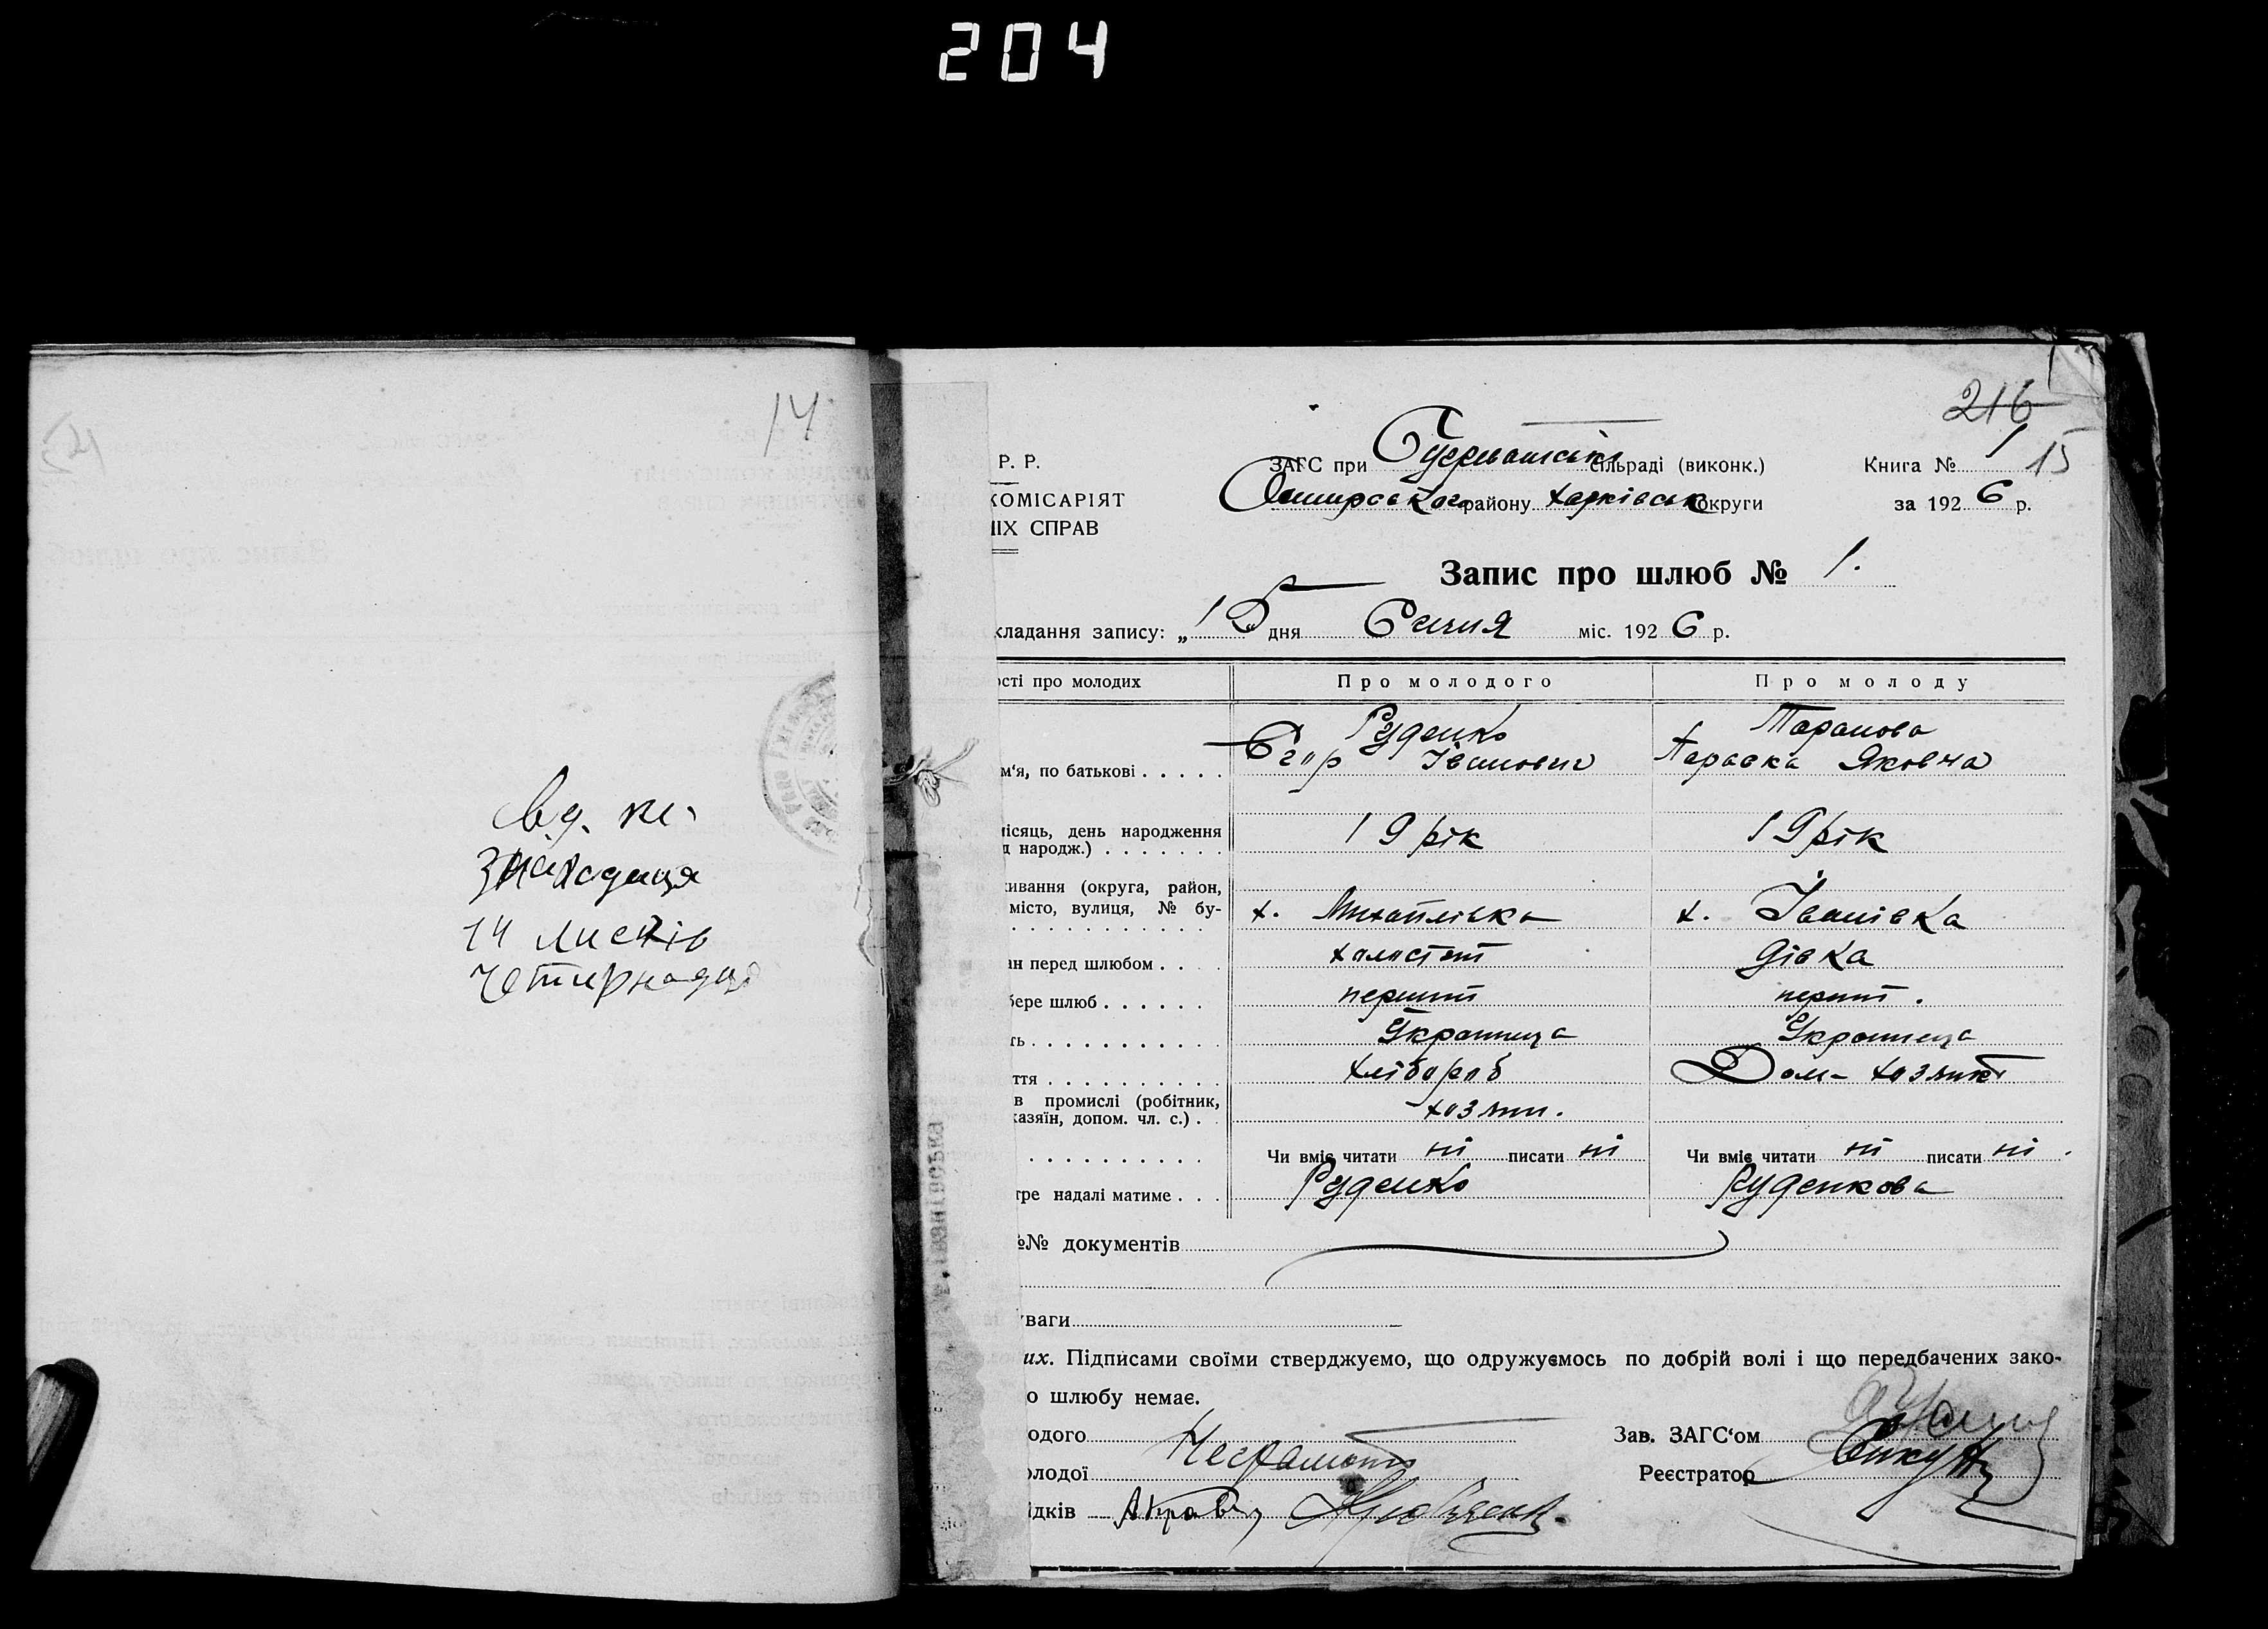 204
14
Вд. кн.
знаходиця
14 листів
четирнадця
216
15
Р. Р.
КОМІСАРІЯТ
ІХ СПРАВ
ЗАГС при сільраді (виконк.)
Книга № 1
району Харківськ округи
за 1926 р.
Запис про шлюб № 1.
кладання запису: „15“ дня Січня міс. 1926 р.
ості про молодих
Про молодого
Про молоду
Руденко
Таранова
м'я, по батькові . . . . .
Єгор Іванович
Параска Яковна
місяць, день народження
д народж.) . . . . . . .
19 рік
19 рік
живання (округа, район,
місто, вулиця, № бу-
х. Михайлівка
х. Іванівка
ан перед шлюбом . . .
холостий
дівка
бере шлюб . . . . . .
перший
перший.
ть . . . . . . . . . .
Українца
Українца
ття . . . . . . . . . .
хлібороб
Дом-хозяйк
в промислі (робітник,
хазяїн, допом. чл. с.) . .
хозяин.
Чи вміє читати ні писати ні
Чи вміє читати ні писати ні.
тре надалі матиме . . .
Руденко
Руденкова
№№ документів
уваги
их. Підписами своїми стверджуємо, що одружуємось по добрій волі і що передбачених зако-
о шлюбу немає.
одого
Зав. ЗАГС'ом
олодої
Неграмотні
Реєстратор
ідків